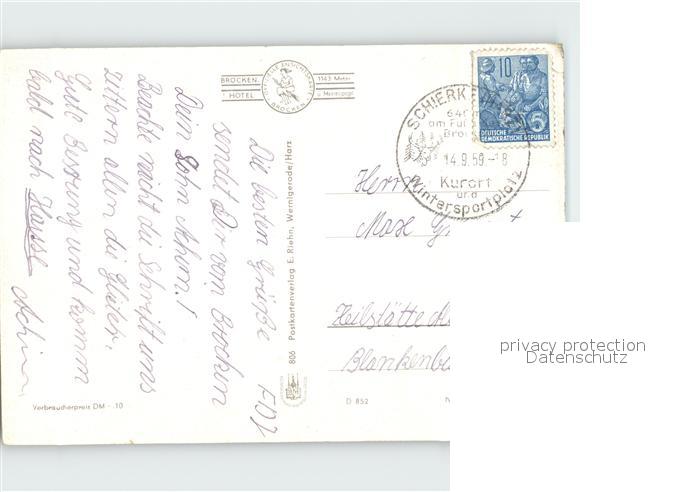 BROCKEN-
HOTEL
OFFIZIELLE ANSICHTSKARTE
BROCKEN
1143 Meter
ü. Meeresspgl.
Die besten Grüße
sendet Dir vom Brocken
Dein Sohn Achim!
Beachte nicht die Schrift uns
zittern allen die Glieder.
Gute Besserung und komm
bald nach Hause
Achim
FDJ
806 Postkartenverlag E. Riehn, Wernigerode/Harz
Verbraucherpreis DM -.10
D 852
10
DEUTSCHE
DEMOKRATISCHE REPUBLIK
5
SCHIERKE
am Fu
Bro
14.9.59-18
Kurort
und
Wintersportplatz
Herrn
Max
Heilstätte
Blankenbu
privacy protection
Datenschutz